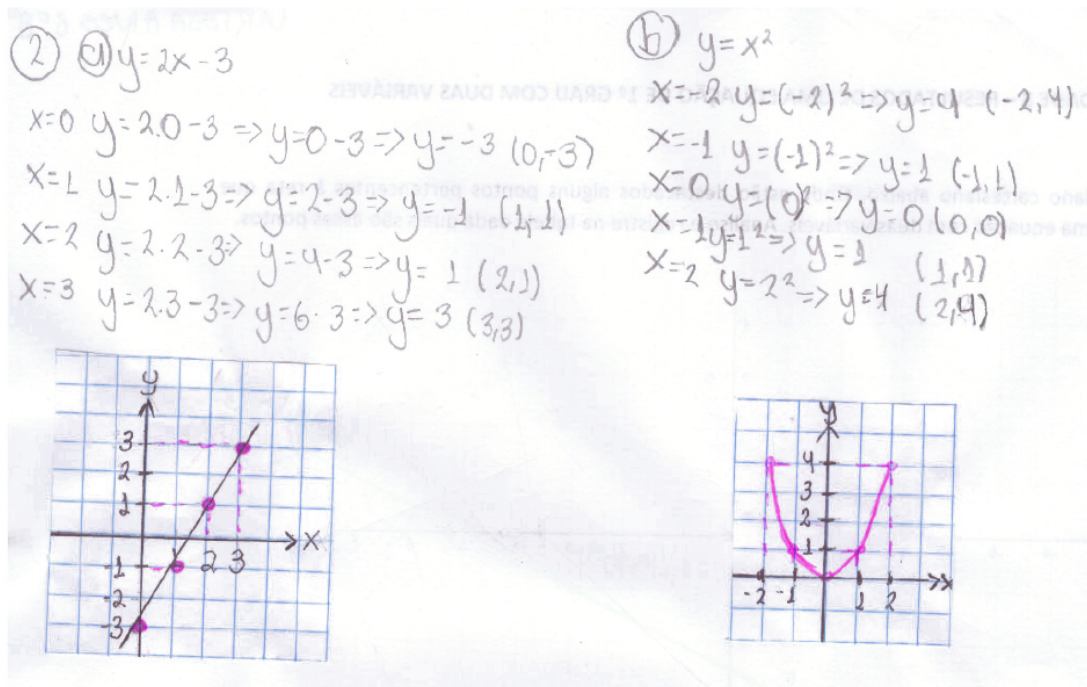 2 a y=2x-3
x=0 y=2.0-3=>y=0-3=>y=-3 (0,-3)
x=1 y=2.1-3=>y=2-3=>y=-1 (1,-1)
x=2 y=2.2-3=>y=4-3=>y=1 (2,1)
x=3 y=2.3-3=>y=6-3=>y=3 (3,3)
y
3
2
1
x
-1 2 3
-2
-3
b y=x²
x=-2 y=(-2)²=>y=4 (-2,4)
x=-1 y=(-1)²=>y=1 (-1,1)
x=0 y=0²=>y=0 (0,0)
y=1²=>y=1 (1,1)
x=2 y=2²=>y=4 (2,4)
y
4
3
2
1
x
-2 -1 1 2